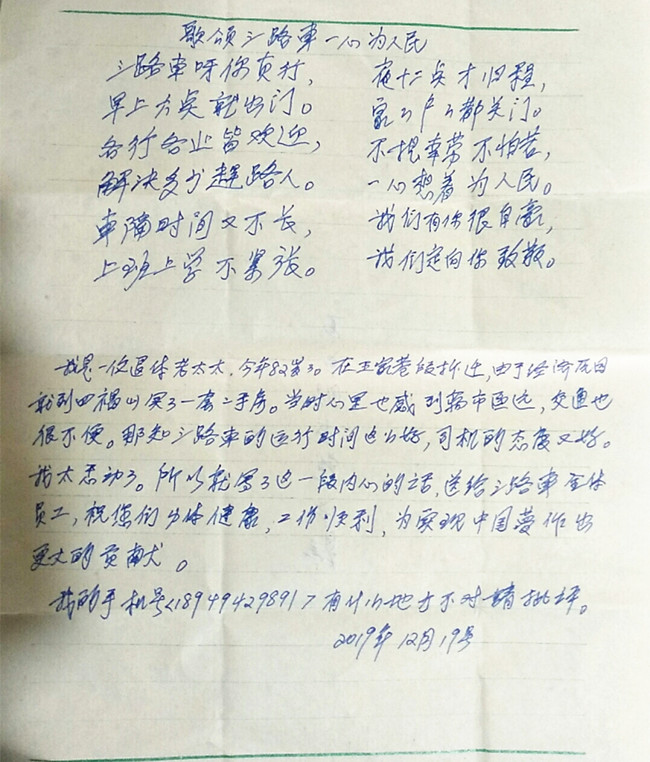 歌颂三路車一心为人民
三路車呀你真行,
早上六点就出门。
各行各业皆欢迎,
解决多少赶路人。
車隔时间又不长,
上班上学不紧张。
夜十二点才归程,
家々户々都关门。
不提辛劳不怕苦,
一心想着为人民。
我们有你很自豪,
我们定向你致敬。
我是一位退休老太太,今年82岁了。在王家巷的拆迁,由于经济原因
就到四福山买了一套二手房。当时心里也感到离市区远,交通也
很不便。那知三路車的运行时间这么好,司机的态度又好。
我太感动了。所以就写了这一段内心的话,送给三路車全体
员工,祝您们身体健康,工作顺利,为实现中国梦作出
更大的贡献。
我的手机号<18949429891>有什么地方不对请批评。
2019年12月19号